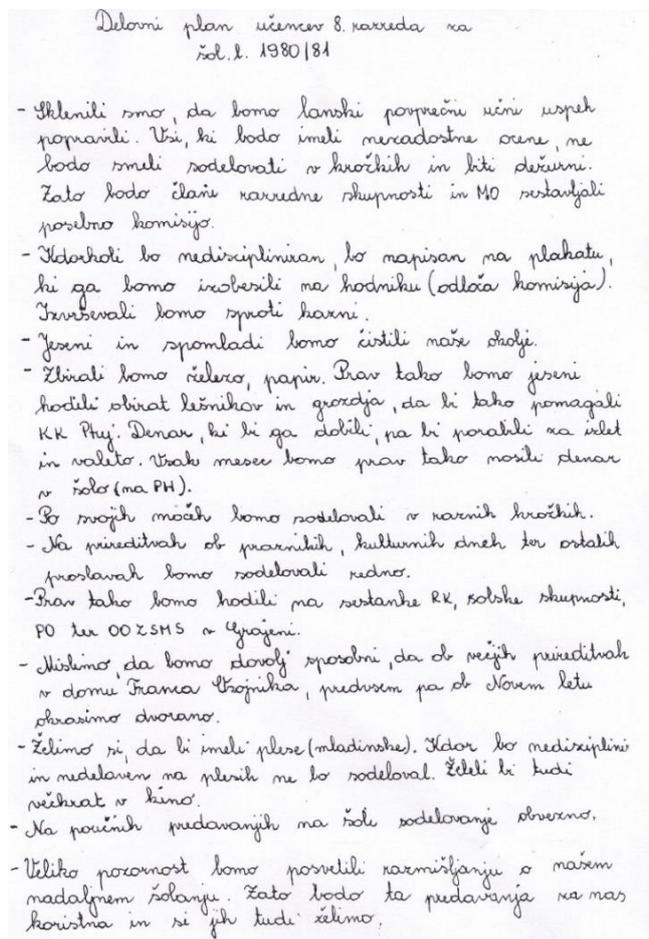 Delovni plan učencev 8. razreda za
šol. l. 1980/81
- Sklenili smo, da bomo lanski povprečni učni uspeh
popravili. Vsi, ki bodo imeli nezadostne ocene, ne
bodo smeli sodelovati v krožkih in biti dežurni.
Zato bodo člani razredne skupnosti in MO sestavljali
posebno komisijo.
- Kdorkoli bo nediscipliniran, bo napisan na plakatu,
ki ga bomo izobesili na hodniku (odloča komisija).
Izvrševali bomo sproti kazni.
- Jeseni in spomladi bomo čistili naše okolje.
- Zbirali bomo železo, papir. Prav tako bomo jeseni
hodili obirat lešnikov in grozdja, da bi tako pomagali
KK Ptuj. Denar, ki bi ga dobili, pa bi porabili za izlet
in valeto. Vsak mesec bomo prav tako nosili denar
v šolo (na PH).
- Po svojih močeh bomo sodelovali v raznih krožkih.
- Na prireditvah ob praznikih, kulturnih dneh ter ostalih
proslavah bomo sodelovali redno.
- Prav tako bomo hodili na sestanke RK, šolske skupnosti,
PO ter OO ZSMS v Grajeni.
- Mislimo, da bomo dovolj sposobni, da ob večjih prireditvah
v domu Franca, predvsem pa ob Novem letu
okrasimo dvorano.
- Želimo si, da bi imeli plese (mladinske). Kdor bo nedisciplini
in nedelaven na plesih ne bo sodeloval. Želeli bi tudi
večkrat v kino.
- Na poučnih predavanjih na šoli sodelovanje obvezno.
- Veliko pozornost bomo posvetili razmišljanju o našem
nadaljnem šolanju. Zato bodo ta predavanja za nas
koristna in si jih tudi želimo.